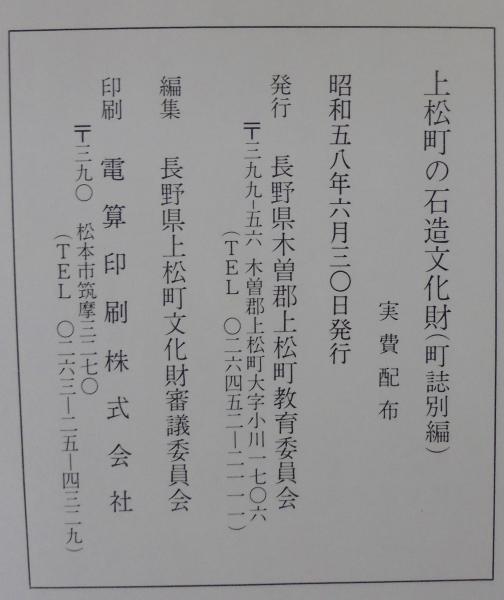 上松町の石造文化財(町誌別編)
実費配布
昭和五八年六月三〇日発行
発行　長野県木曽郡上松町教育委員会
〒三九九-五六　木曽郡上松町大字小川一七〇六
(TEL　〇二六四五二―二一一一)
編集　長野県上松町文化財審議委員会
印刷　電算印刷株式会社
〒三九〇　松本市筑摩三二七〇
(TEL　〇二六三―二五―四三二九)